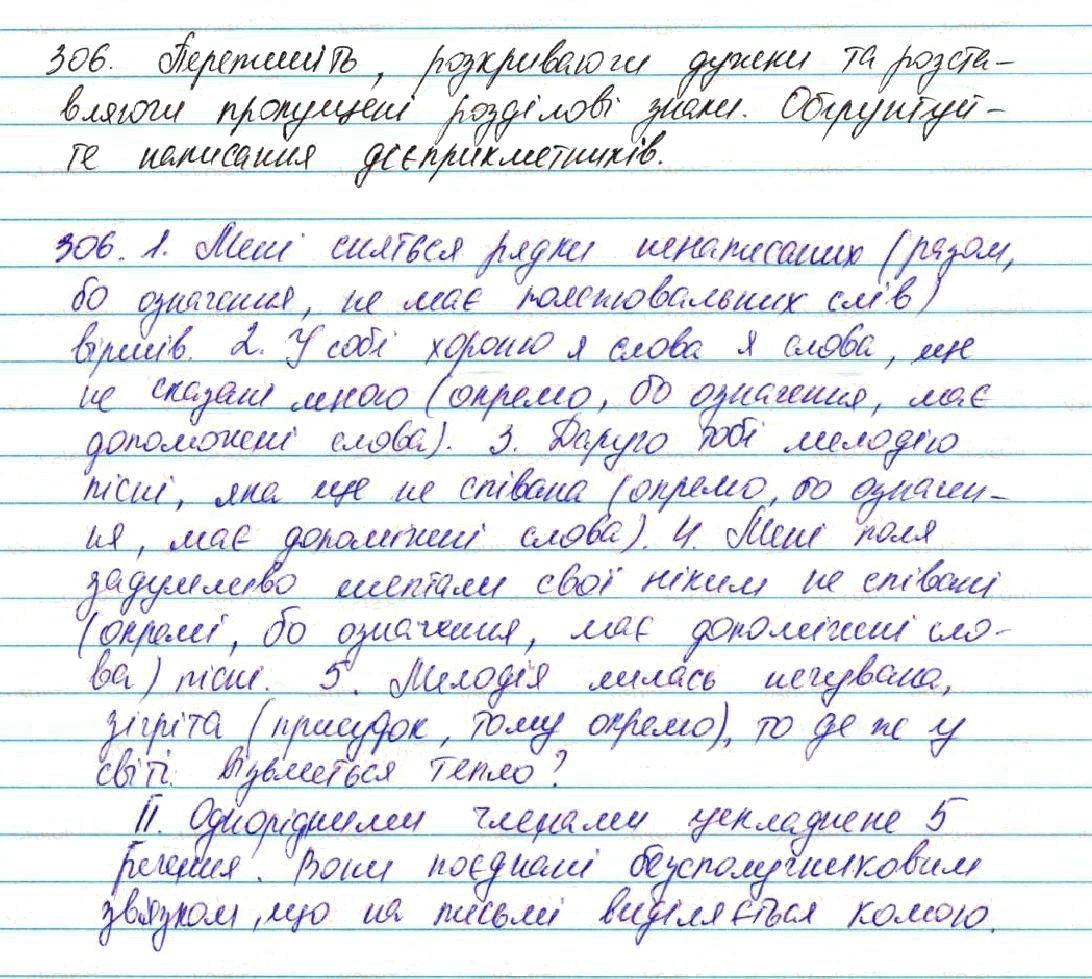 306. Перепишіть, розкриваючи дужки та розста-
вляючи пропущені розділові знаки. Обґрунтуй-
те написання дієприкметників.
306. 1. Мені сняться рядки ненаписаних (разом,
бо означення, не має пояснювальних слів)
віршів. 2. У собі хороню я слова я слова, ще
не сказані мною (окремо, бо означення, має
допоможні слова). 3. Дарую тобі мелодію
пісні, яка ще не співана (окремо, бо означен-
ня, має допоміжні слова). 4. Мені поля
задумливо шептали свої ніким не співані
(окремі, бо означення, має допоміжні сло-
ва) пісні. 5. Мелодія лилась нечувана,
зігріта (присудок, тому окремо), то де ж у
світі візьметься тепло?
II. Однорідними членами ускладнене 5
речення. Вони поєднані безсполучниковим
зв'язком, що на письмі виділяється комою.